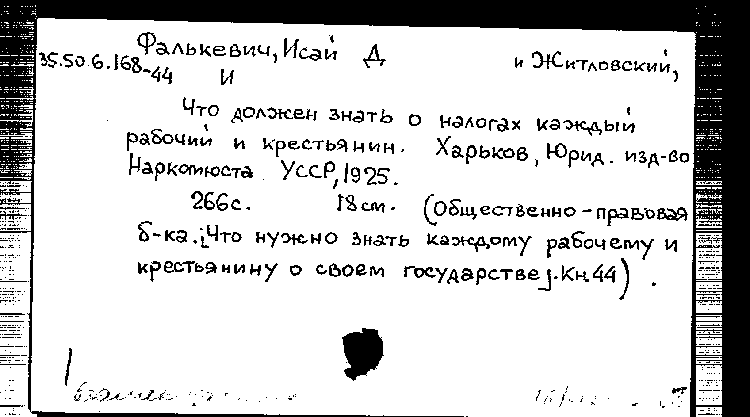 Фалькевич, Исай Д и Житловский,
35.50.6.168-44 И
Что должен знать о налогах каждый
рабочий и крестьянин. Харьков, Юрид. изд-во
Наркомюста УССР, 1925.
266с. 18см. (Общественно-правовая
б-ка. [Что нужно знать каждому рабочему и
крестьянину о своем государстве]. Кн.44).